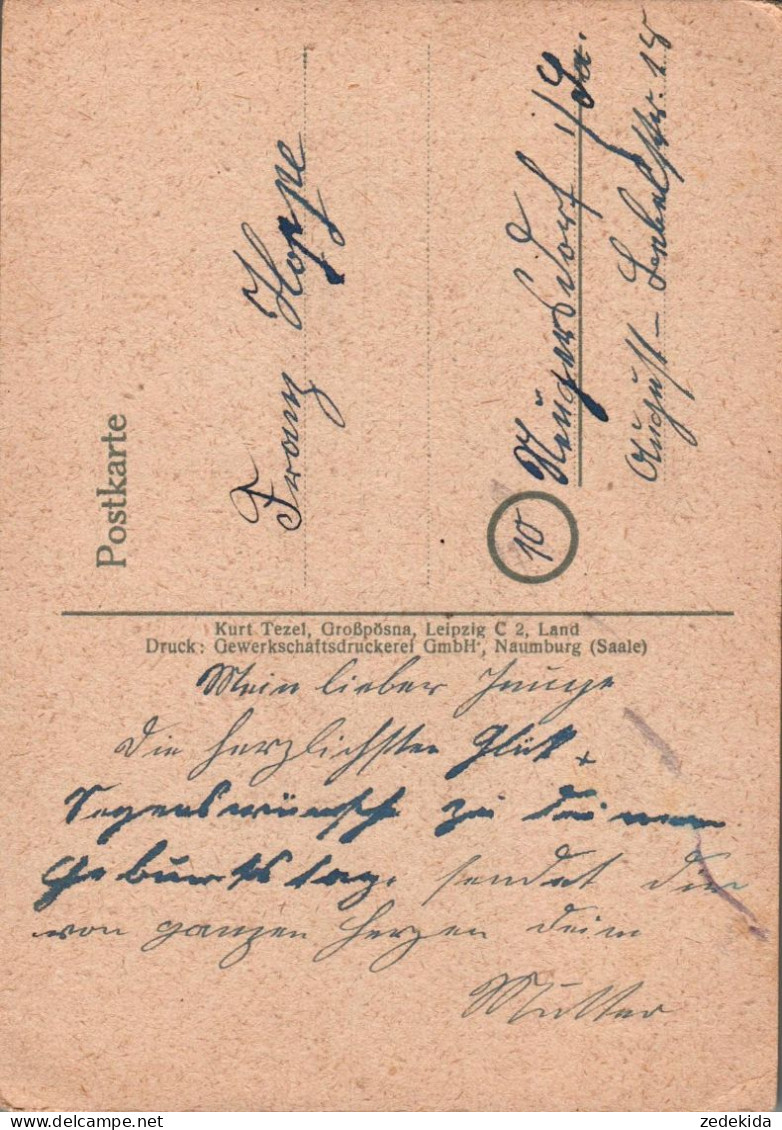 Postkarte
Franz Hoppe
10
Neugersdorf i/Sa.
August-Bebelstr. 18
Kurt Tezel, Großpösna, Leipzig C 2, Land
Druck: Gewerkschaftsdruckerei GmbH, Naumburg (Saale)
Mein lieber Junge
Die herzlichsten Glück +
Segenswünsche zu deinem
Geburtstag. sendet dir
von ganzen Herzen deine
Mutter
zedekida